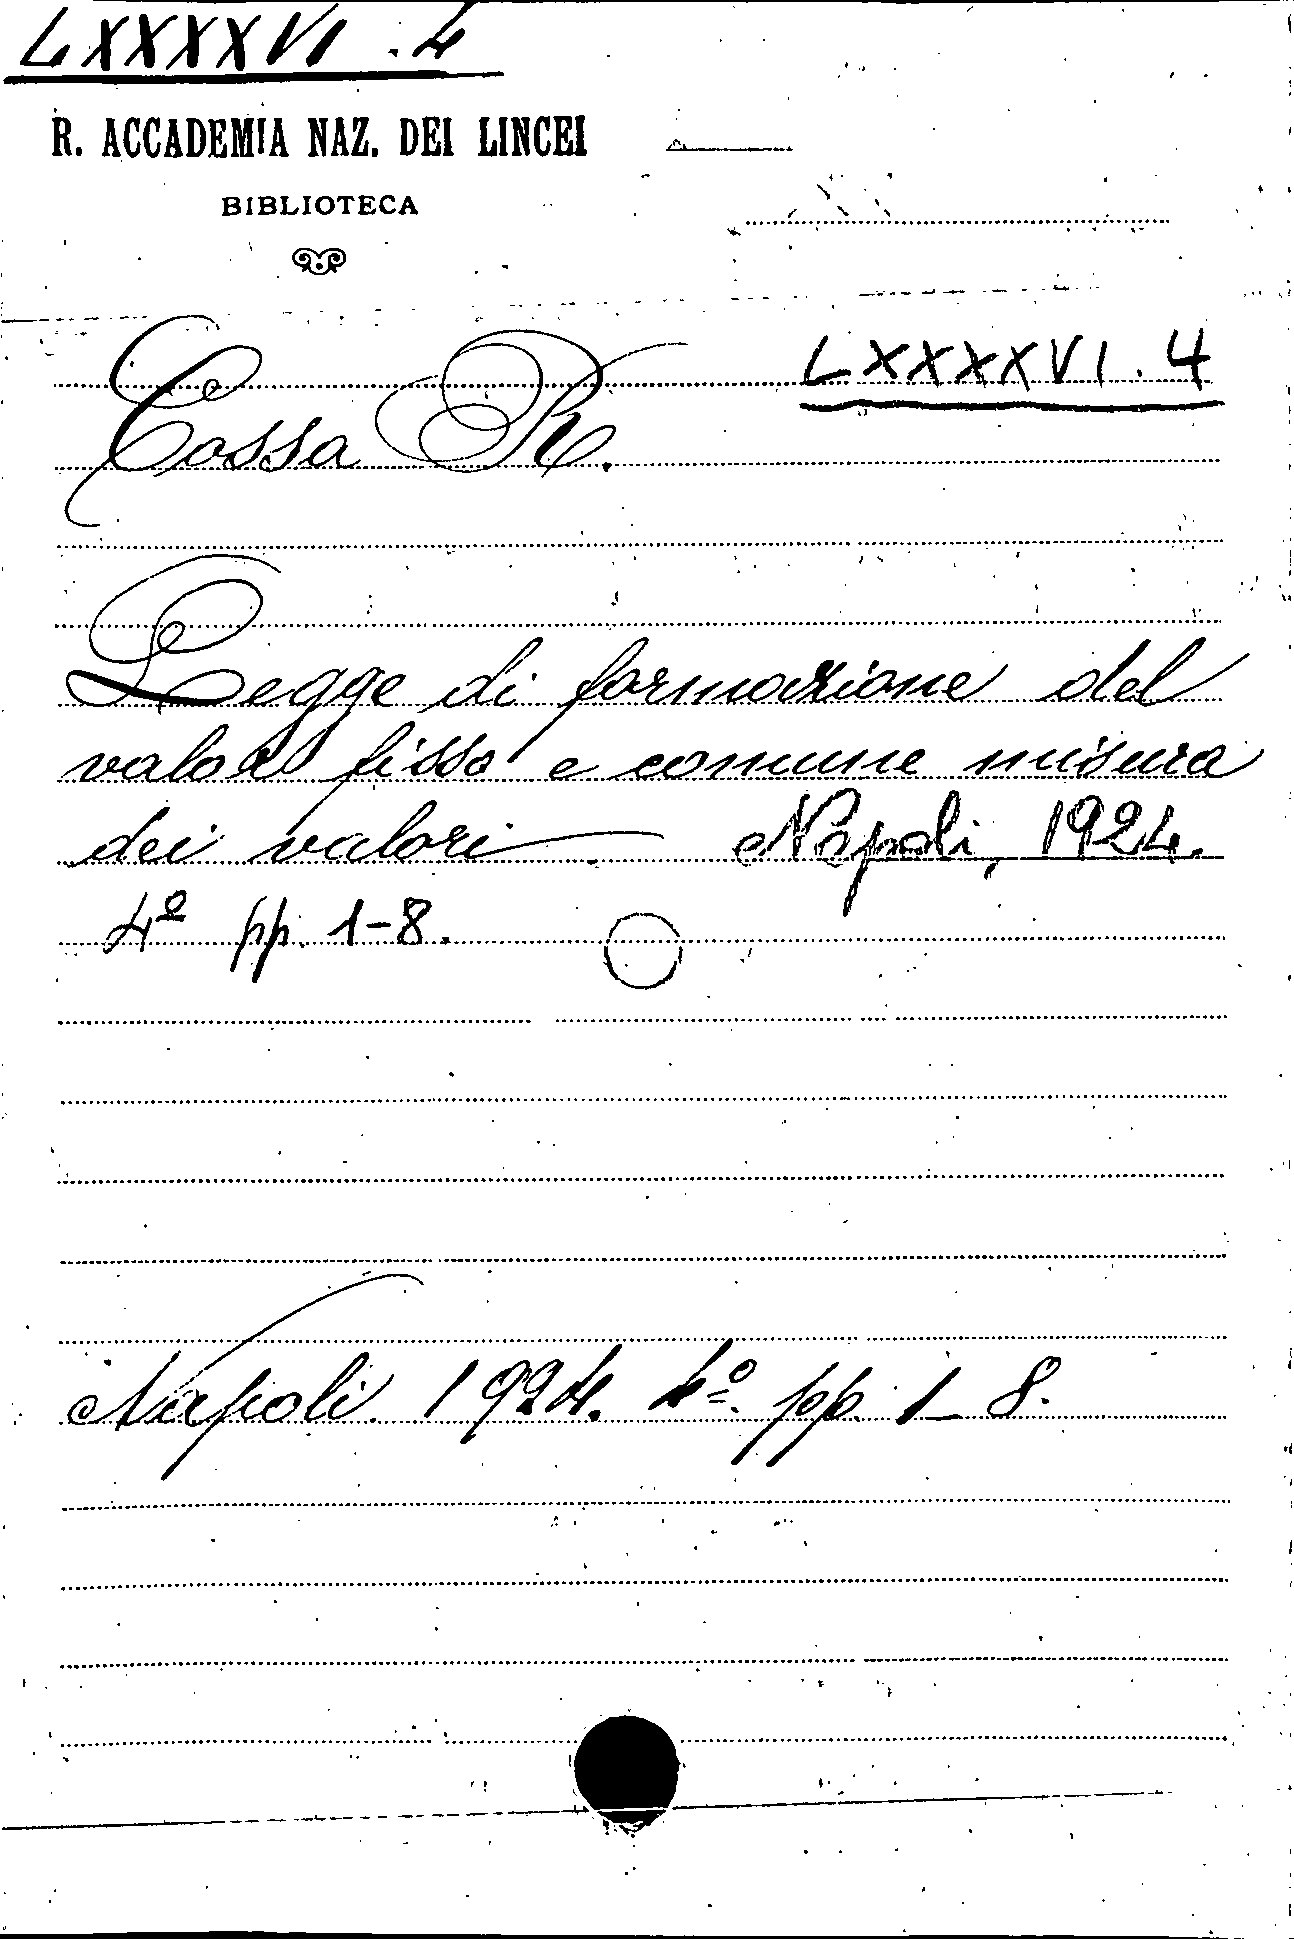 LXXXXVI. 4
R. ACCADEMIA NAZ. DEI LINCEI
BIBLIOTECA
LXXXXVI. 4
Cossa R.
Legge di formazione del
valor fisso e comune misura
dei valori Napoli, 1924.
4º pp. 1-8.
Napoli. 1924. 4º. pp. 1-8.